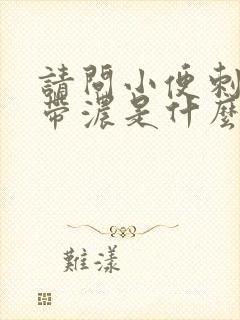 請問小便刺
帶濃是什麼
難漾